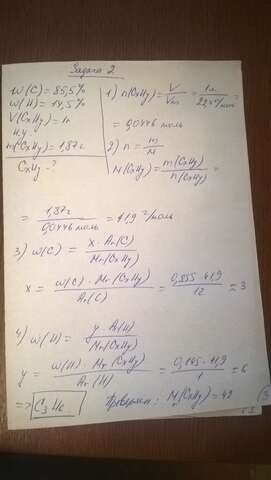 Задача 2
W(C) = 85,5%
W(H) = 14,5%
V(CxHy) = 1л
н.у.
m(CxHy) = 1,87г
CxHy - ?
1) n(CxHy) = V/Vm = 1л/22,4 л/моль =
= 0,0446 моль
2) n = m/M
M(CxHy) = m(CxHy)/n(CxHy) =
= 1,87г/0,0446 моль = 41,9 г/моль
3) w(C) = x · Ar(C)/Mr(CxHy)
x = w(C) · Mr(CxHy)/Ar(C) = 0,855 · 41,9/12 = 3
4) w(H) = y · Ar(H)/Mr(CxHy)
y = w(H) · Mr(CxHy)/Ar(H) = 0,145 · 41,9/1 = 6
=> C3H6
Проверка: Mr(CxHy) = 42